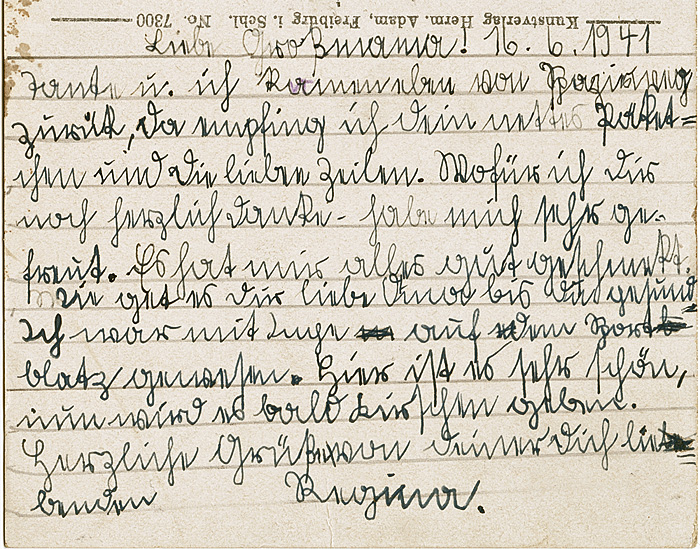 Kunstverlag Herm. Adam, Freiburg i. Schl. No. 7300
Liebe Großmama! 16. 6. 1941
Tante u. ich kamen eben von Spazirweg
zurük, da empfing ich dein nettes Päket=
chen und die lieben Zeilen. Wofür ich dir
noch herzlich danke - habe mich sehr ge-
freut. Es hat mir alles gut geschmekt.
Wie get es dir liebe Oma bis du gesund
Ich war mit Inge auf dem Sport
blatz gewesen. Hier ist es sehr schön,
nun wird es bald Kirschen geben.
Herzliche Grüße von deiner dich lie
benden Regina.